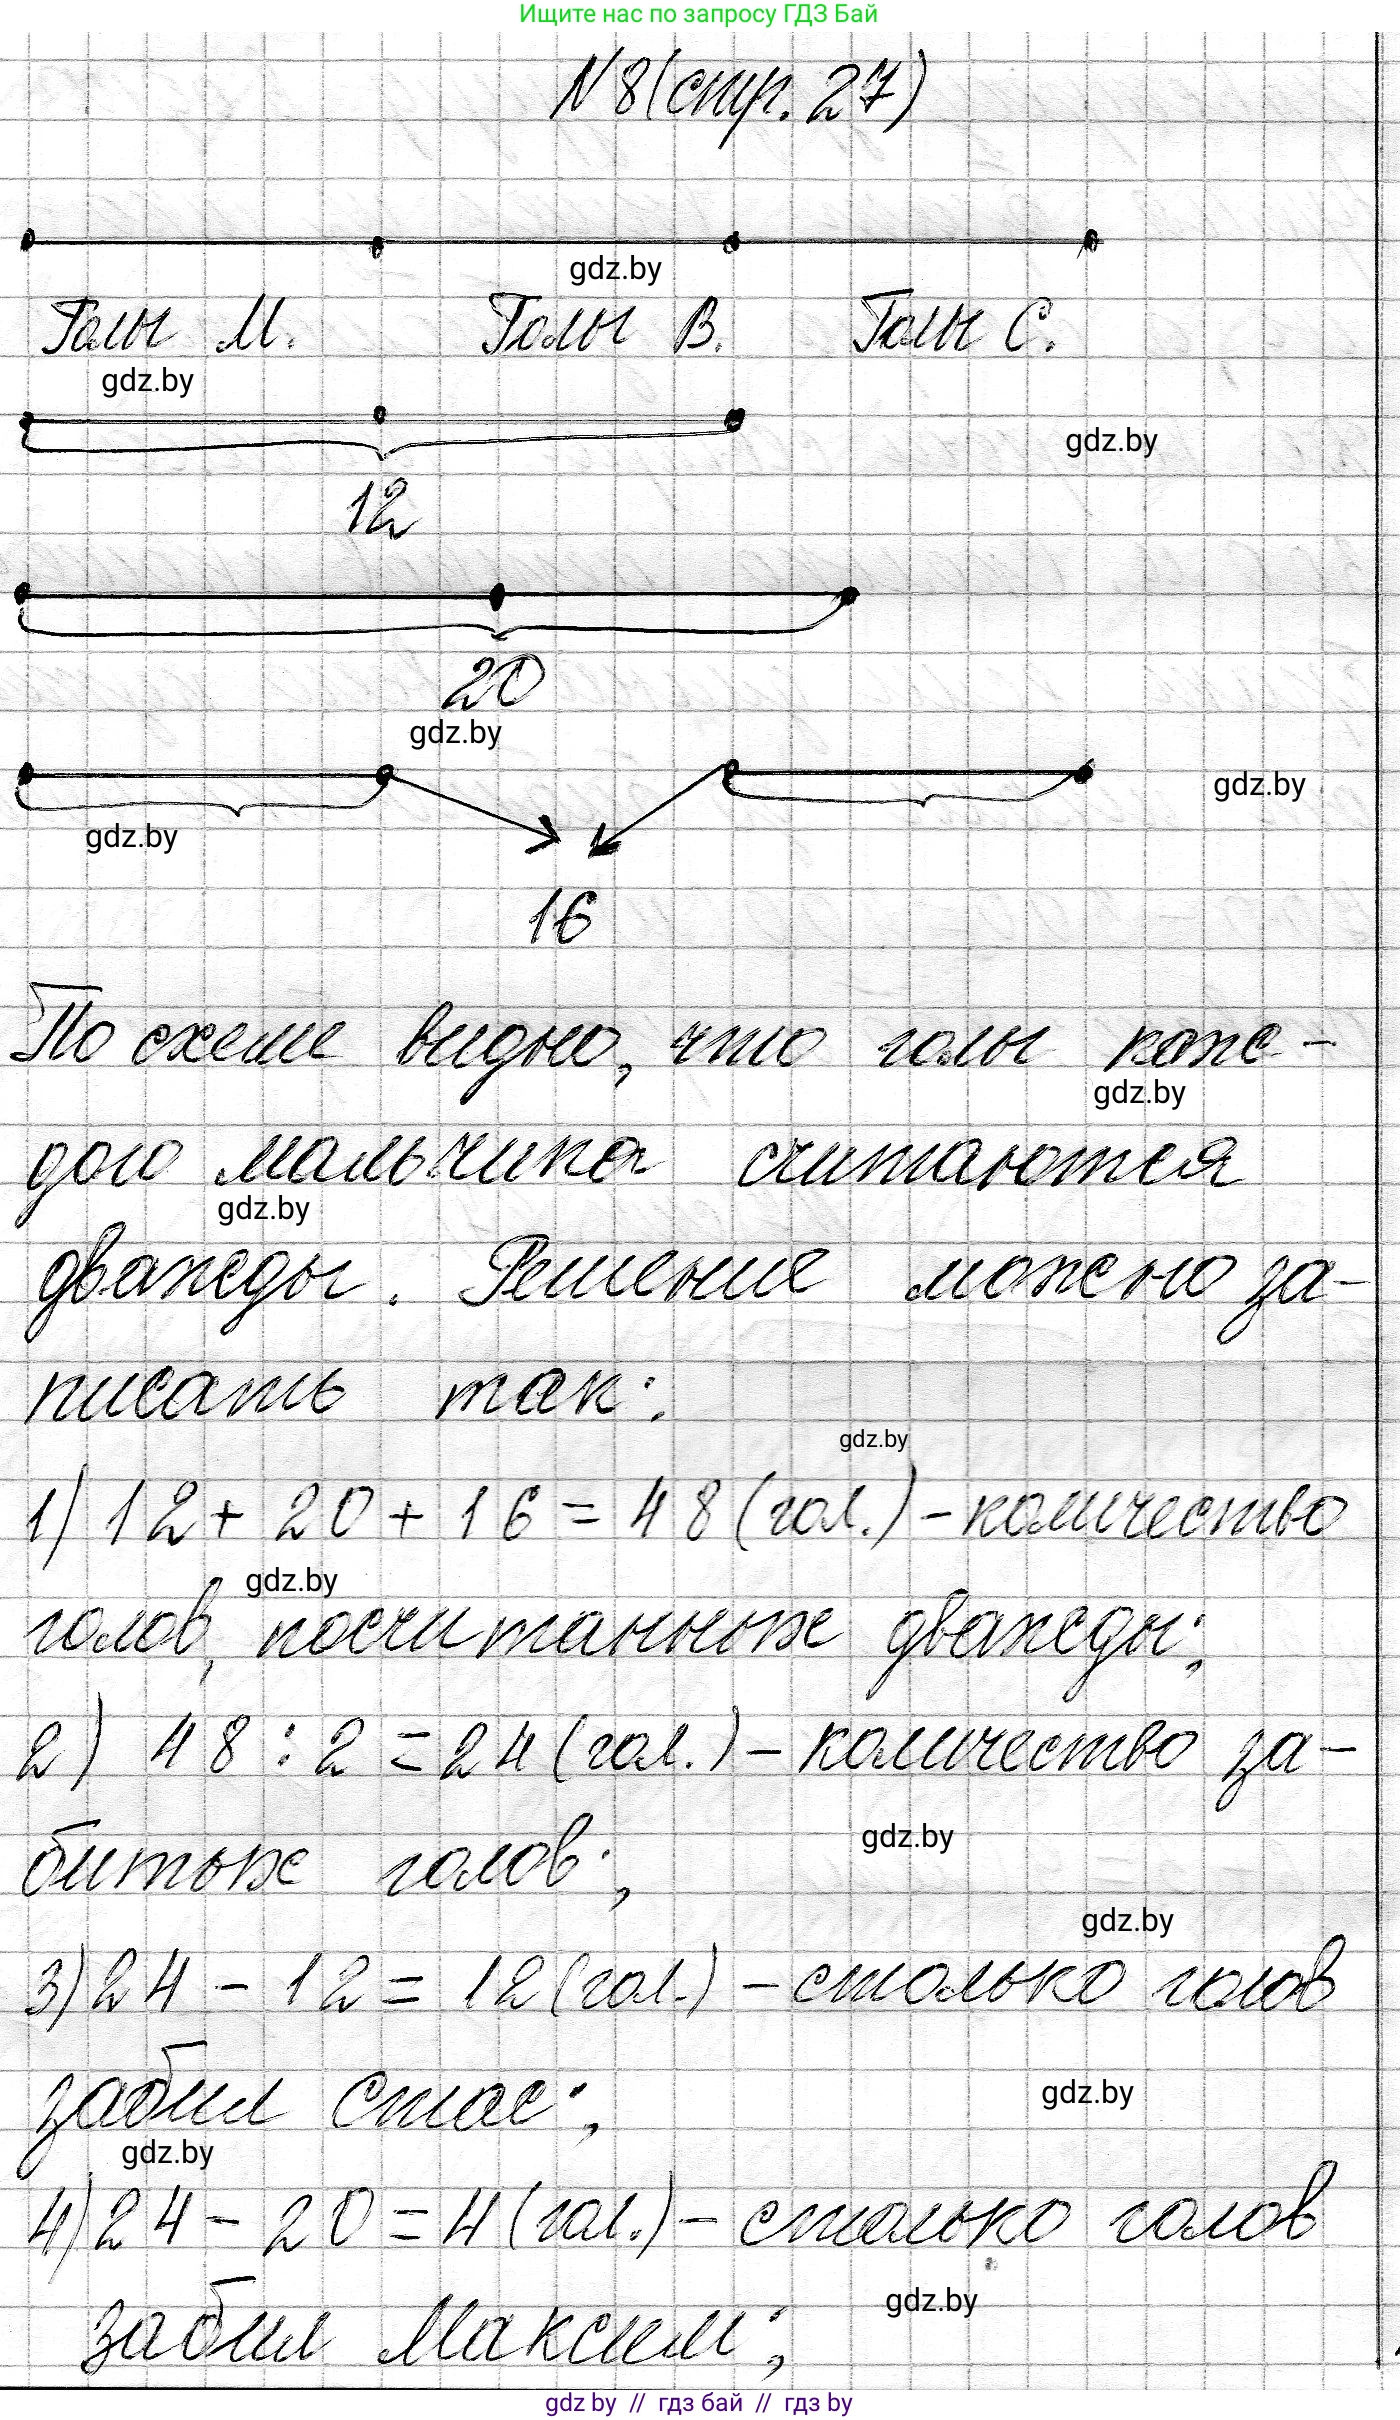 Ищите нас по запросу ГДЗ Бай
№8 (стр. 27)
gdz.by
Голы М. Голы В. Голы С.
gdz.by
gdz.by
12
20
gdz.by
gdz.by
gdz.by
16
По схеме видно, что голы каж-
gdz.by
дого мальчика считаются
gdz.by
дважды. Решение можно за-
писать так:
gdz.by
1) 12 + 20 + 16 = 48 (гол.) - количество
gdz.by
голов, посчитанных дважды;
2) 48 : 2 = 24 (гол.) - количество за-
gdz.by
битых голов;
gdz.by
3) 24 - 12 = 12 (гол.) - столько голов
забил Стас;
gdz.by
gdz.by
4) 24 - 20 = 4 (гол.) - столько голов
gdz.by
забил Максим;
gdz by // гдз бай // гдз by